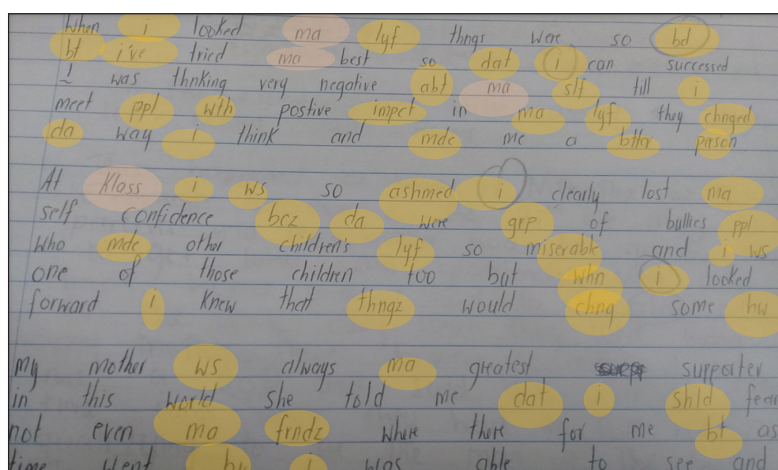 When i looked ma lyf thngs were so bd
bt i've tried ma best so dat i can successed
I was thnking very negative abt ma slf till i
meet ppl wth postive impct in ma lyf they chnged
da way i think and mde me a bttr person
At klass i ws so ashmed i clearly lost ma
self confidence bcz da were grp of bullies ppl
who mde other children's lyf so miserable and i ws
one of those children too but whn i looked
forward i knew that thngz would chng some hw
my mother ws always ma greatest supporter
in this world she told me dat i shld fear
not even ma frndz where there for me bt as
time went by i was able to see and